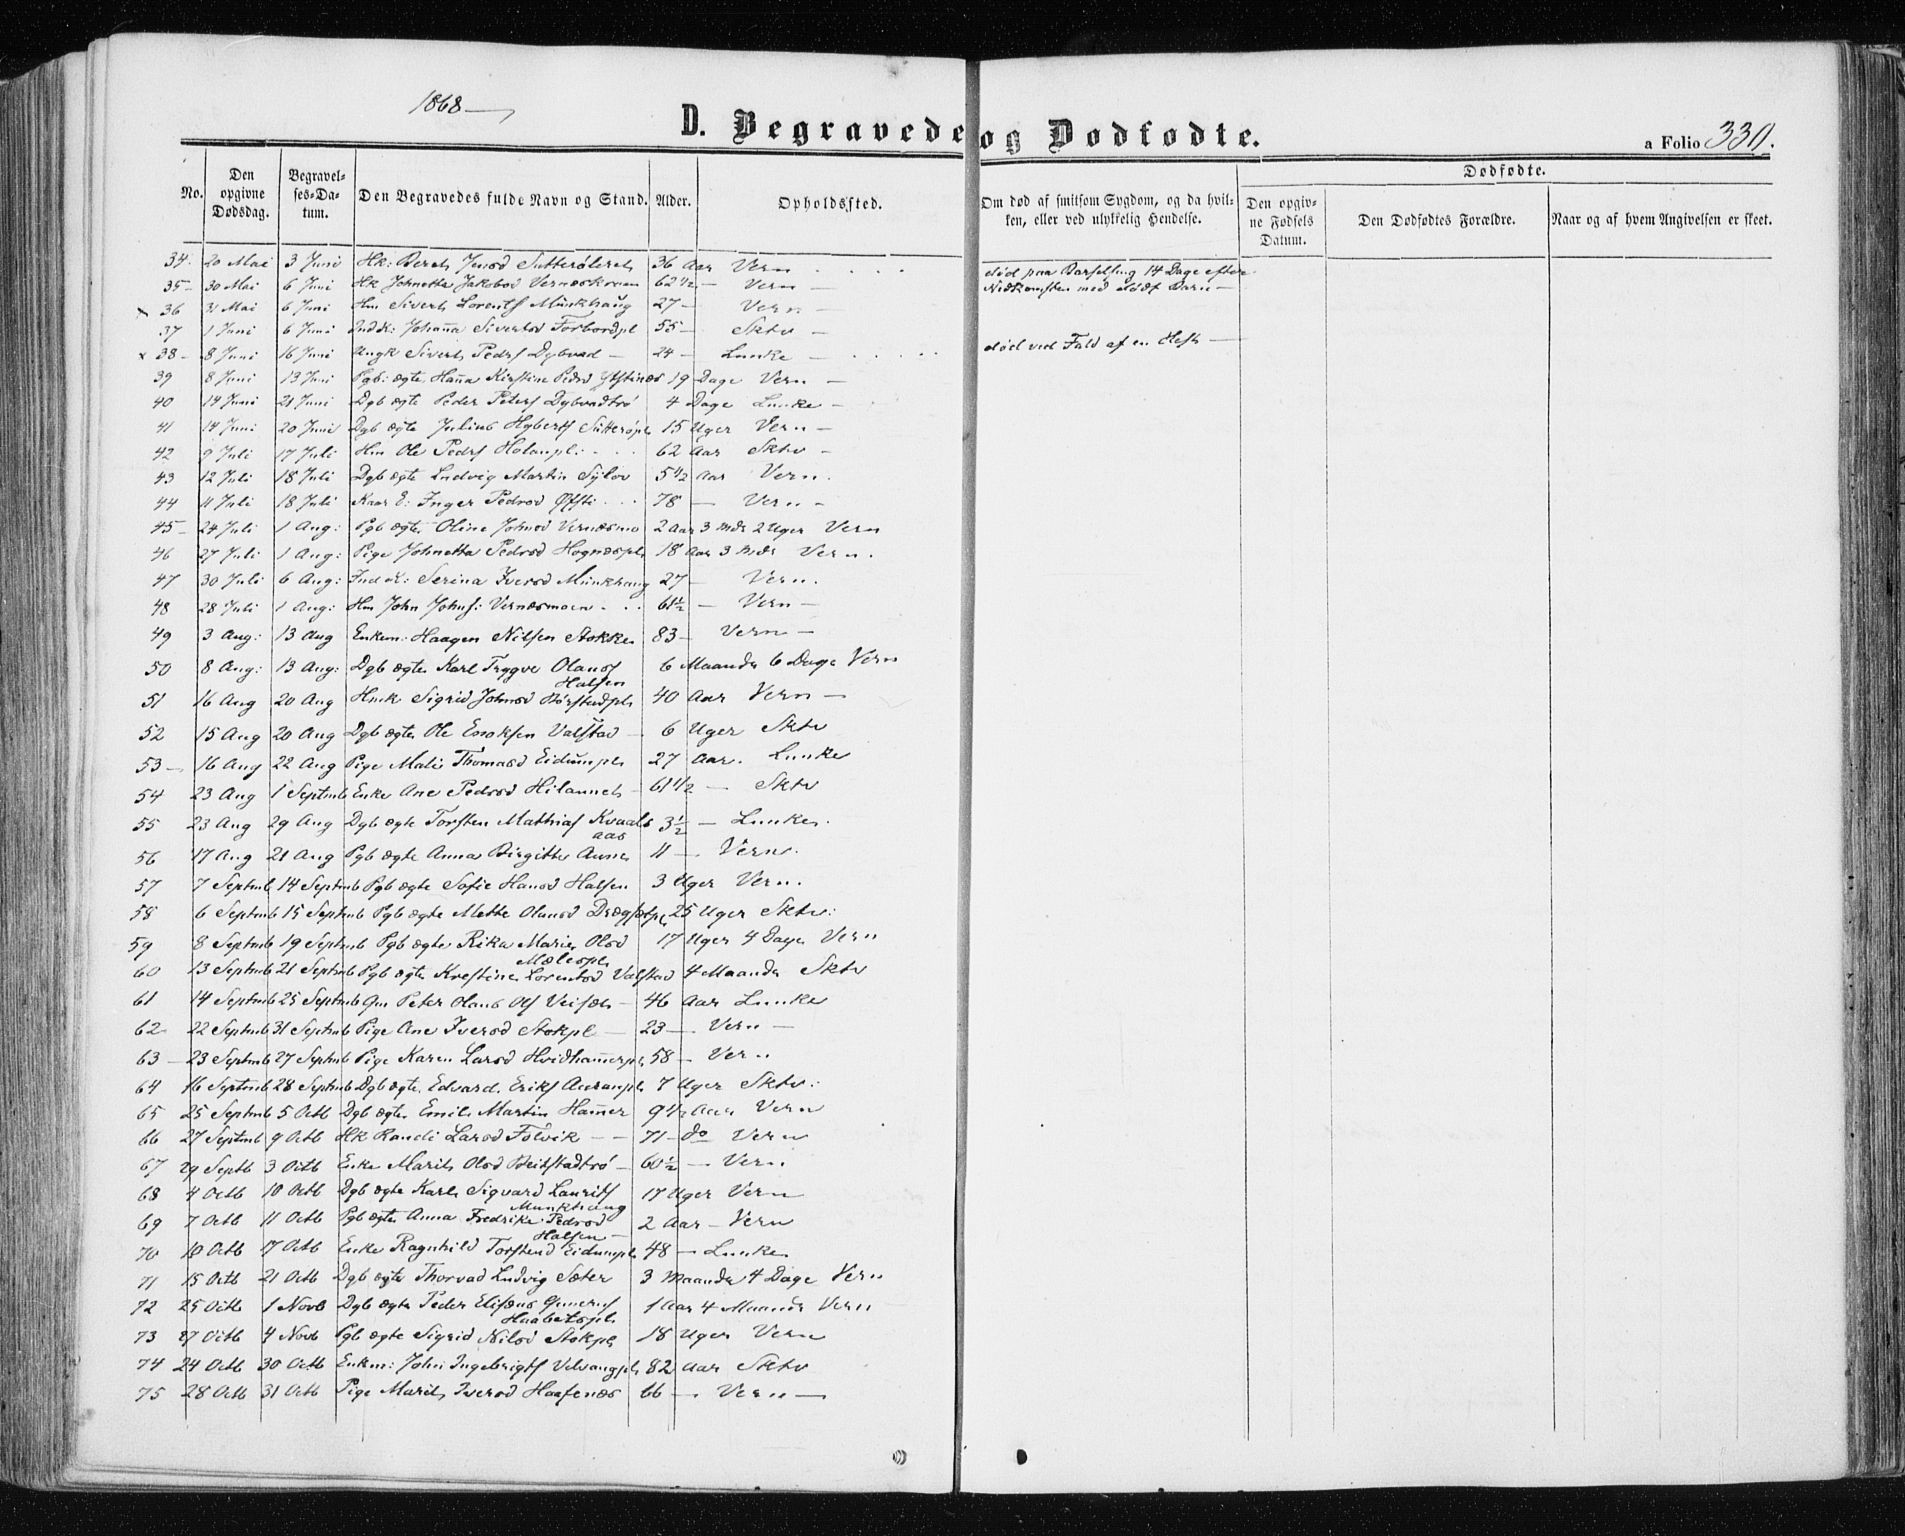 1868
D. Begravede og Dødfødte.
a Folio 330.
No.
Den opgivne Dødsdag.
Begravelses-Datum.
Den Begravedes fulde Navn og Stand.
Alder.
Opholdssted.
Om død af smitsom Sygdom, og da hvilken, eller ved ulykkelig Hendelse.
Dødfødte.
Den opgivne Fødsels Datum.
Den Dødfødtes Forældre.
Naar og af hvem Angivelsen er skeet.
34. 20 Mai 3 Juni Hk: Bereth Jensd Sutterøleret 36 Aar Vern død paa Barselseng 14 Dage efter
35 30 Mai 6 Juni Hk Johnetta Jakobsd Vernæskroen 62 1/2 — Vern — Nedkomsten med dødt Barn —
x 36 31 Mai 6 Juni Hm Sivert Lorents Munkhaug 27 — Vern —
37 1 Juni 6 Juni Ind K: Johanna Sivertsd Forbordpl 55 — Sktv —
x 38 8 Juni 16 Juni Ungk Sivert Peders Dybvad — 24 — Lunke — død ved Fald af en Hest —
39 8 Juni 13 Juni Pgb: ægte Hanna Kirstine Pedersd 19 Dage Vern —
40 14 Juni 21 Juni Dgb ægte Peder Peters Dybvadtrø 4 Dage Lunke —
41 14 Juni 20 Juni Dgb ægte Julius Hyberts Sutterøpl 15 Uger Vern —
42 9 Juli 17 Juli Hm Ole Peders Holanpl: 62 Aar Sktv —
43 12 Juli 18 Juli Dgb ægte Ludvig Martin Sylov 5 1/2 Aar Vern.
44 11 Juli 18 Juli Kaar E: Inger Pedersd Øfsti 78 — Vern —
45 24 Juli 1 Aug: Pgb ægte Oline Johnsd Vernæsmo 2 Aar 3 Mdr 2 Uger Vern
46 27 Juli 1 Aug: Pige Johnetta Pedersd Hognæspl 18 Aar 3 Mdr Vern.
47 30 Juli 6 Aug: Ind K: Serina Iversd Munkhaug 27 — Vern.
48 28 Juli 1 Aug: Hm John Johns: Vernæsmoen 61 1/2 — Vern —
49 3 Aug: 13 Aug Enkem: Haagen Nilsen Stokke 83 — Vern —
50 8 Aug: 13 Aug: Dgb ægte Karl Trygve Olaus Halsen 6 Maander 6 Dage Vern
51 16 Aug 20 Aug Hmk Sigrid Johnsd Børstadpl 40 Aar Vern —
52 15 Aug 20 Aug Dgb ægte Ole Enoksen Valstad — 6 Uger Sktv
53 — 16 Aug 22 Aug Pige Mali Thomasd Eidumpl 27 Aar. Lunke
54 23 Aug 1 Septmb Enke Ane Pedersd Hilannet — 61 1/2 — Sktv
55 23 Aug 29 Aug Dgb ægte Torsten Mathias Kvaals aas 3 1/2 — Lunke.
56 17 Aug 21 Aug Pgb ægte Anna Birgitte Aune 11 — Vern.
57 7 Septmb 14 Septmb Pgb ægte Sofie Hansd Halsen 3 Uger Vern.
58 6 Septmb 15 Septmb Pgb ægte Mette Olausd 25 Uger Sktv:
59 8 Septmb 19 Septmb Pgb ægte Rika Marie Olsd Mælespl 17 Uger 4 Dage Vern
60 13 Septmb 21 Septmb Pgb ægte Krestine Lorentsd Valstad 4 Maander Sktv
61 14 Septmb 25 Septmb Gm Peter Olaus Ols 46 Aar Lunke
62 22 Septmb 31 Septmb Pige Ane Iversd Stokpl — 23 — Vern —
63 — 23 Septmb 27 Septmb Pige Karen Larsd Hvidhammerpl 58 — Vern
64 16 Septmb 28 Septmb Dgb ægte Edvard Eriks Auranpl 7 Uger Sktv:
65 25 Septmb 5 Octb Dgb ægte Emil Martin Hammer 9 1/2 Aar Vern
66 27 Septmb 9 Octb Hk Randi Larsd Folvik — — 71 — do Vern
67 29 Septb 3 Octb Enke Marit Olsd Beitstadtrø — 60 1/2 — Vern
68 4 Octb 10 Octb Dgb ægte Karl Sigvard Laurits Munkhaug 17 Uger Vern
69 7 Octb 11 Octb Pgb ægte Anna Fredrike Pedersd Halsen — 2 Aar — Vern
70 10 Octb 17 Octb Enke Ragnhild Torstensd Eidumpl 48 — Lunke
71 15 Octb 21 Octb Dgb ægte Thorvad Ludvig Sæter 3 Maander 4 Dage Vern
72 25 Octb 1 Novb Dgb ægte Peder Elisæus Gunerius Haabetspl 1 Aar 4 Maander Vern
73 27 Octb 4 Novb Pgb ægte Sigrid Nilsd Stokpl 18 Uger Vern
74 24 Octb 30 Octb Enkm: John Ingebrigts Velvangpl 82 Aar Sktv
75 28 Octb 31 Octb Pige Marit Iversd Haafenæs 66 — Vern —